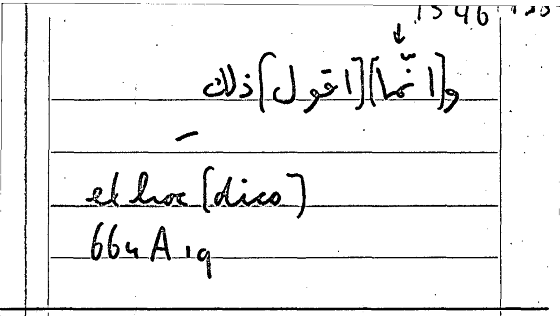 و[انّما][اقول]ذلك
et hoc [dico]
664 A 19